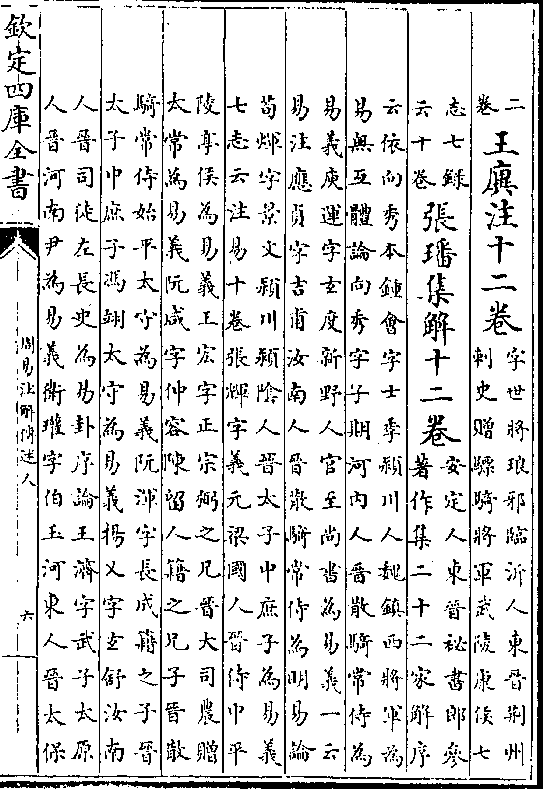 二
卷
王廙注十二卷
字世將琅邪臨沂人東晉荆州
刺史贈驃騎將軍武陵康侯七
志七錄
云十卷
張璠集解十二卷
安定人東晉祕書郎參
著作集二十二家解序
云依向秀本鍾會字士季潁川人魏鎮西將軍為
易無互體論向秀字子期河内人晉散騎常侍為
易義庾運字玄度新野人官至尚書為易義一云
易注應貞字吉甫汝南人晉散騎常侍為明易論
荀煇字景文潁川潁陰人晉太子中庶子為易義
七志云注易十卷張輝字義元梁國人晉侍中平
陵亭侯為易義王宏字正宗弼之兄晉大司農贈
太常為易義阮咸字仲容陳留人籍之兄子晉散
騎常侍始平太守為易義阮渾字長成籍之子晉
太子中庶子馮翊太守為易義楊乂字玄舒汝南
人晉司徒左長史為易卦序論王濟字武子太原
人晉河南尹為易義衛瓘字伯玉河東人晉太保
欽定四庫全書
周易注解傳述人
六